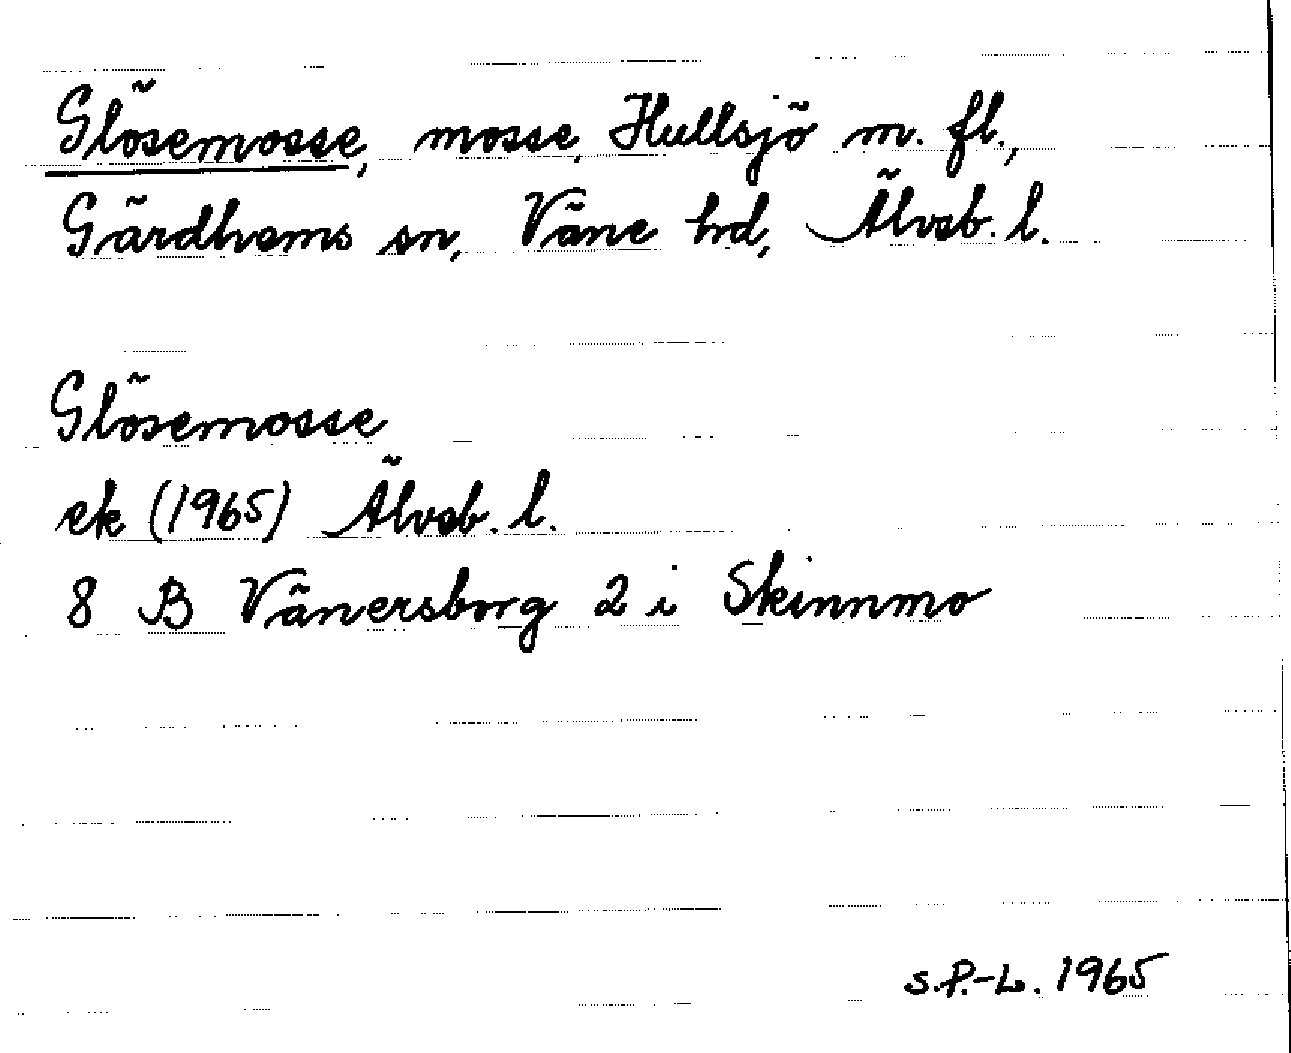 Glösemosse, mosse, Hullsjö m. fl.,
Gärdhems sn, Väne hd, Älvsb. l.
Glösemosse
ek (1965) Älvsb. l.
8 B Vänersborg 2 i Skinnmo
s.P.-L. 1965